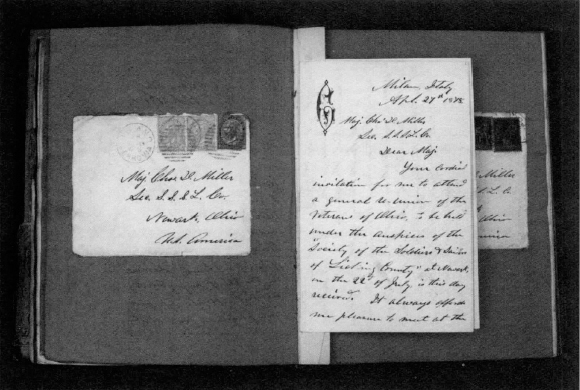 Maj Chas D. Miller
Sec. S. S. & L. Co.
Newark, Ohio
U.S. America
G
Milan, Italy
Apl. 27th 1878
Maj. Chas D. Miller
Sec. S.S.&L. Co.
Dear Maj
Your cordial
invitation for me to attend
a general re-union of the
Veterans of Ohio, to be held
under the auspices of the
"Society of the Soldiers & Sailors
of Licking County" at Newark,
on the 22d of July is this day
received. It always affords
me pleasure to meet at the
Miller
& L. Co.
Ohio
America